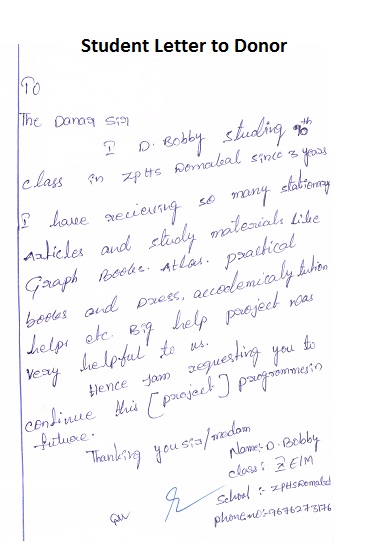 Student Letter to Donor
To
The Danar Sir
I D. Bobby studing 9th
class in ZPHS Domakal since 3 years
I have recieving so many stationary
Articles and study materials Like
Graph Books. Atlas. practical
books and Dress, accodemicaly tution
helps etc. Big help project was
very helpful to us.
Hence Iam requesting you to
continue this [project] programmes in
future.
Thanking you sir/madam
Name:- D. Bobby
class:
School :- ZPHS Domakal
phone no:- 9676273176